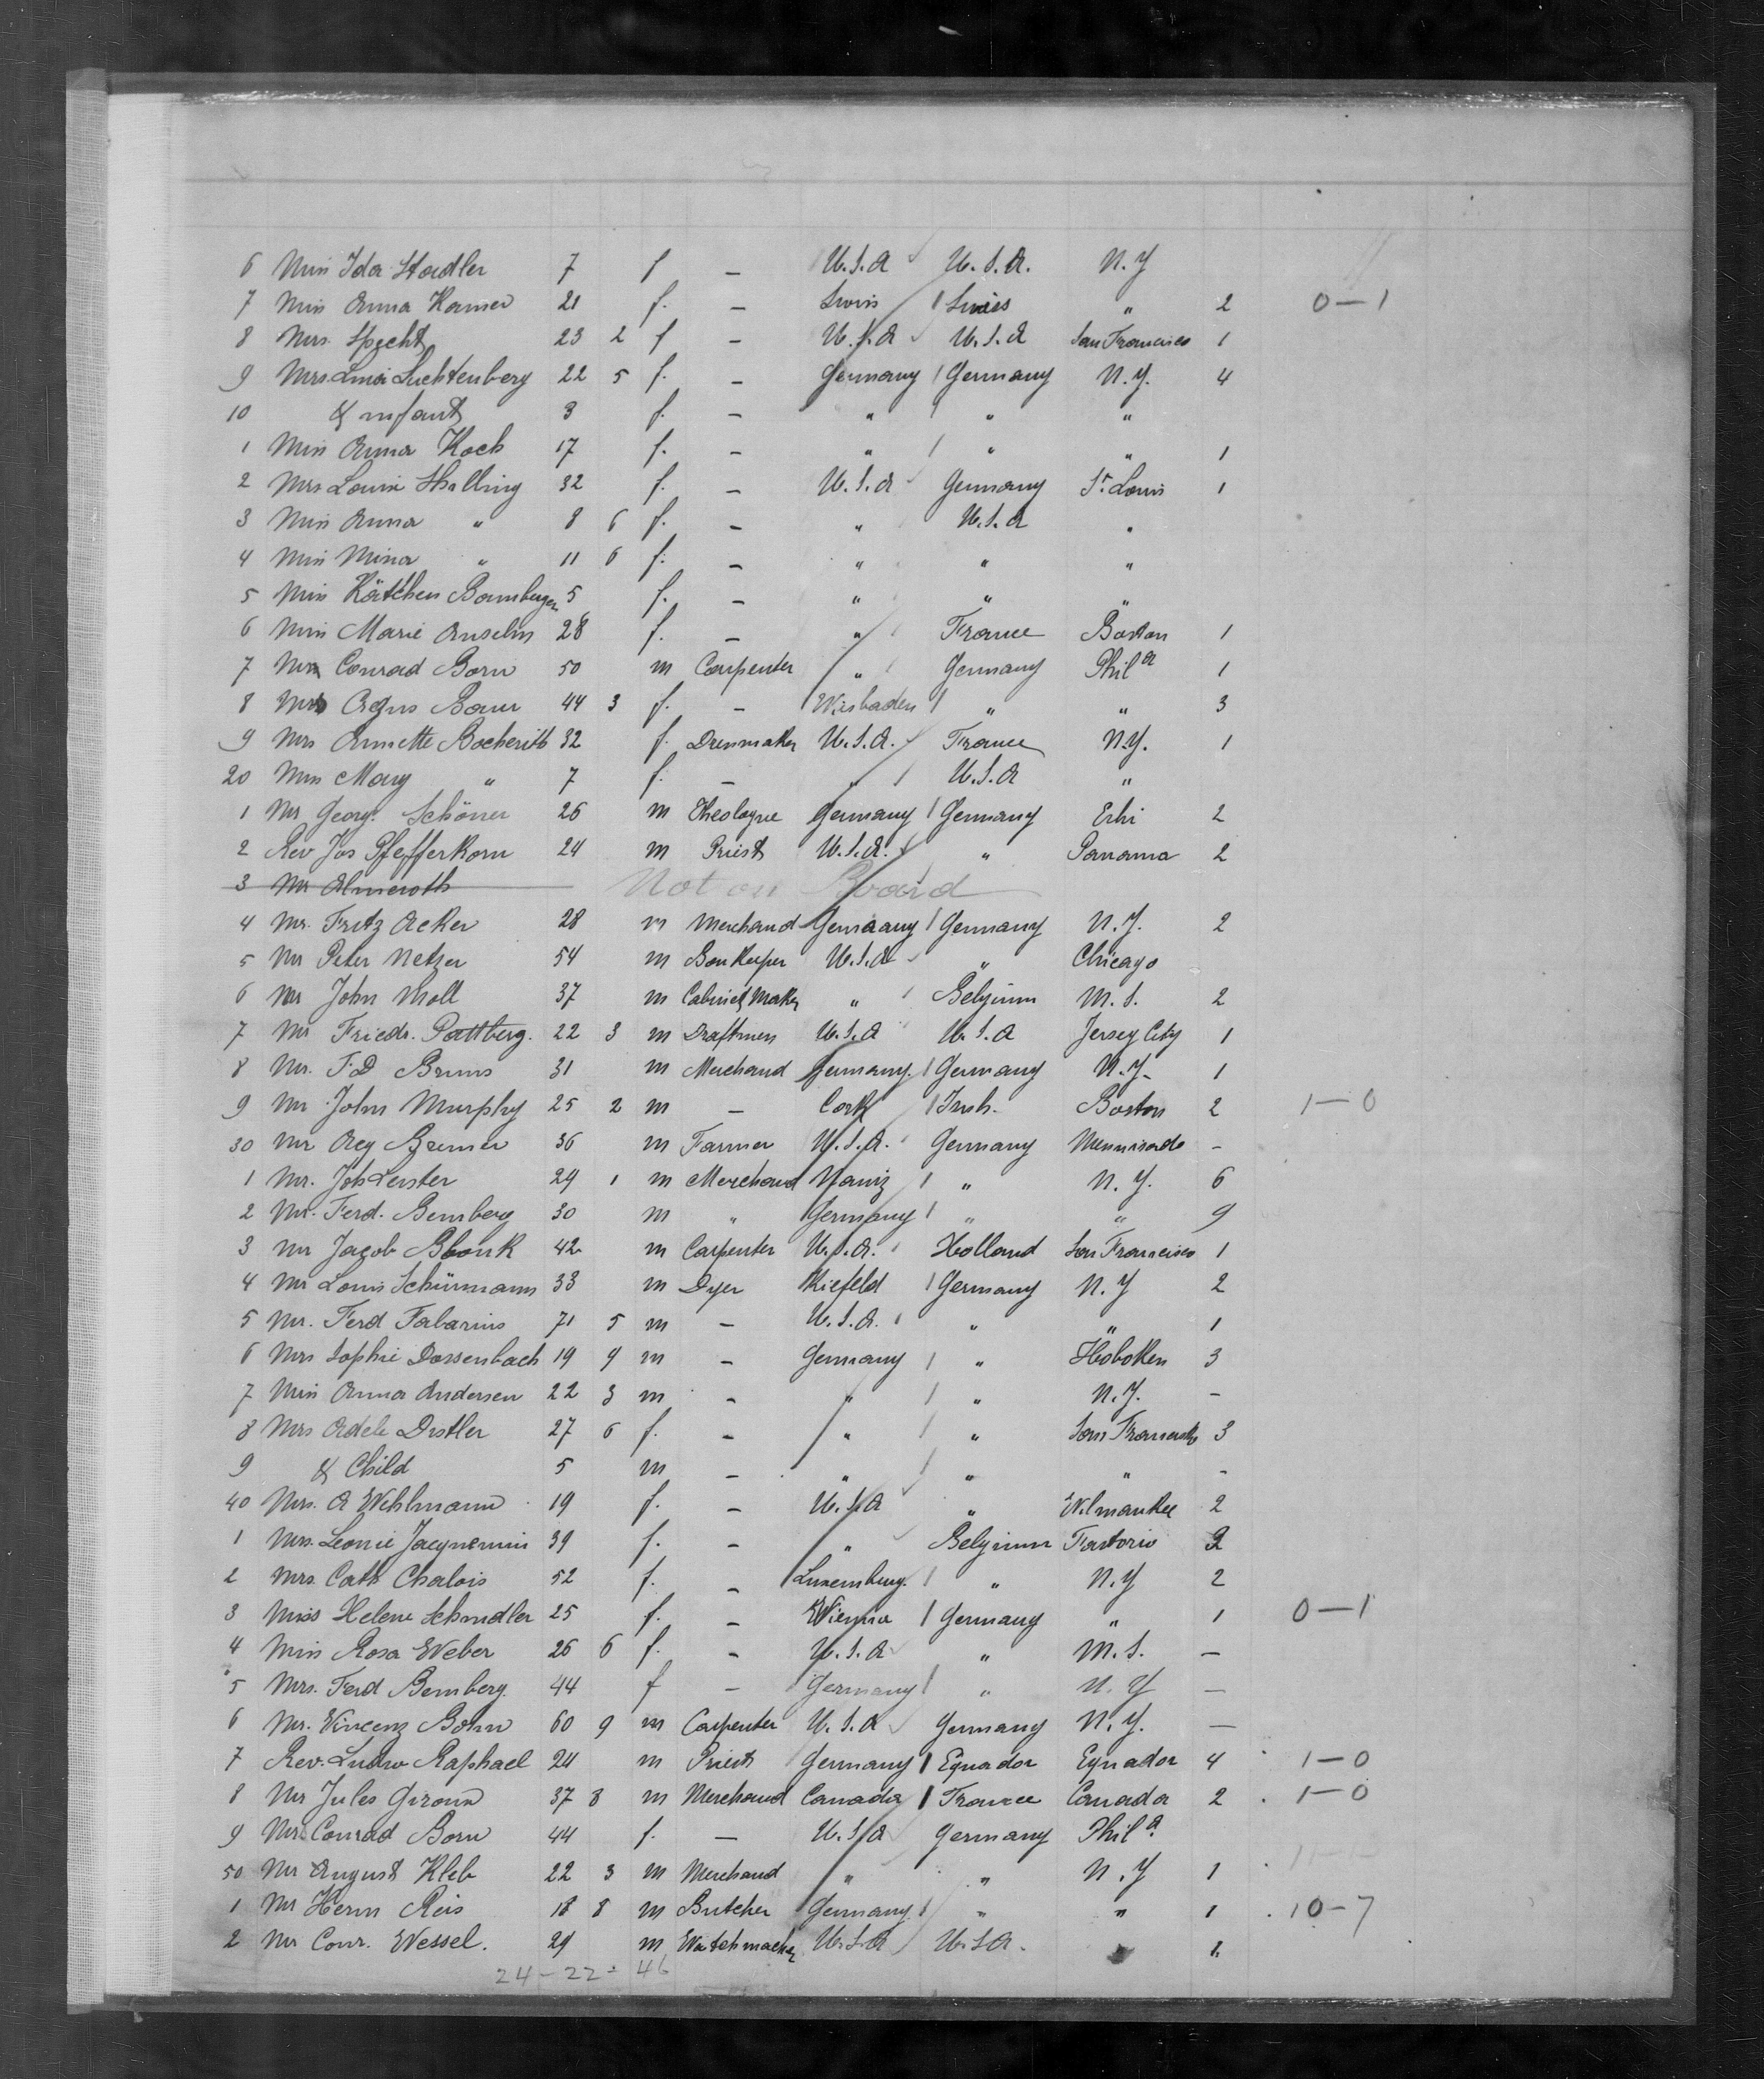 6 Miss Ida Stadler 7 f – U.S.A U.S.A. N.Y
7 Miss Anna Kamer 21 f. – Swiss Swiss " 2 0–1
8 Mrs. Specht 23 2 f – U.S.A U.S.A San Francisco 1
9 Mrs. Lina Luchtenberg 22 5 f. – Germany Germany N.Y. 4
10 & infant 3 f. – " " "
1 Miss Anna Koch 17 f. – " " " 1
2 Mrs Louise Halling 32 f. – U.S.A Germany St. Louis 1
3 Miss Anna " 8 6 f. – " U.S.A "
4 Miss Mina " 11 6 f. – " " "
5 Miss Kätchen Bamberger 5 f. – " " "
6 Miss Marie Anselm 28 f. – " France Boston 1
7 Mr Conrad Born 50 m Carpenter " Germany Phila 1
8 Mrs Agnes Baur 44 3 f. – Wisbaden " " 3
9 Mrs Annette 32 f. Dressmaker U.S.A. France N.Y. 1
20 Miss Mary " 7 f. – " U.S.A "
1 Mr Georg. Schörrer 26 m Theologue Germany Germany 2
2 Rev Jos Pfefferkorn 24 m Priest U.S.A. " Panama 2
3 Mr Almeroth Not on Board
4 Mr. Fritz Acker 28 m Merchand Germaany Germany N.Y. 2
5 Mr Peter Netzer 54 m U.S.A " Chicago
6 Mr John Moll 37 m Cabinet Maker " Belgium M.S. 2
7 Mr Friedr. Pattberg. 22 3 m Draftmen U.S.A U.S.A Jersey City 1
8 Mr. F.D Bruns 31 m Merchand Germany. Germany N.Y. 1
9 Mr John Murphy 25 2 m – Cork Irish. Boston 2 1–0
30 Mr Aeg Bremer 36 m Farmer U.S.A. Germany –
1 Mr. Joh Leister 29 1 m Merchand Mainz " N.Y. 6
2 Mr. Ferd. Bemberg 30 m " Germany " " 9
3 Mr Jacob Blonk 42 m Carpenter U.S.A. Holland San Francisco 1
4 Mr Louis Schürmann 33 m Dyer Kiefeld Germany N.Y 2
5 Mr. Ferd Fabarius 71 5 m – U.S.A. " " 1
6 Mrs Sophie Dossenbach 19 9 m – Germany " Hoboken 3
7 Miss Anna Andersen 22 3 m – " " N.Y. –
8 Mrs Adele Distler 27 6 f. – " " San Francisko 3
9 & Child 5 m – " " " –
40 Mrs. A Wehlmann 19 f. – U.S.A " Wilmaukee 2
1 Mrs. Leonie Jacqnemin 39 f. – " Belgium 2
2 Mrs. Cath Chalois 52 f. – Luxemburg. " N.Y 2
3 Miss Helene Schindler 25 f. – Wienna Germany " 1 0–1
4 Miss Rosa Weber 26 6 f. – U.S.A " M.S. –
5 Mrs. Ferd Bemberg. 44 f – Germany " N.Y –
6 Mr. Vincenz Bohn 60 9 m Carpenter U.S.A Germany N.Y. –
7 Rev. Ludw Raphael 24 m Priest Germany Equador Equador 4 1–0
8 Mr Jules Giroux 37 8 m Merchand Canada France Canada 2 1–0
9 Mrs Conrad Born 44 f. – U.S.A Germany Phila.
50 Mr August Kleb 22 3 m Merchand " " N.Y 1
1 Mr Herm Reis 18 8 m Butcher Germany " " 1 10–7
2 Mr Conr. Wessel. 29 m Watchmacker U.S.A U.S.A. 1.
24–22= 46